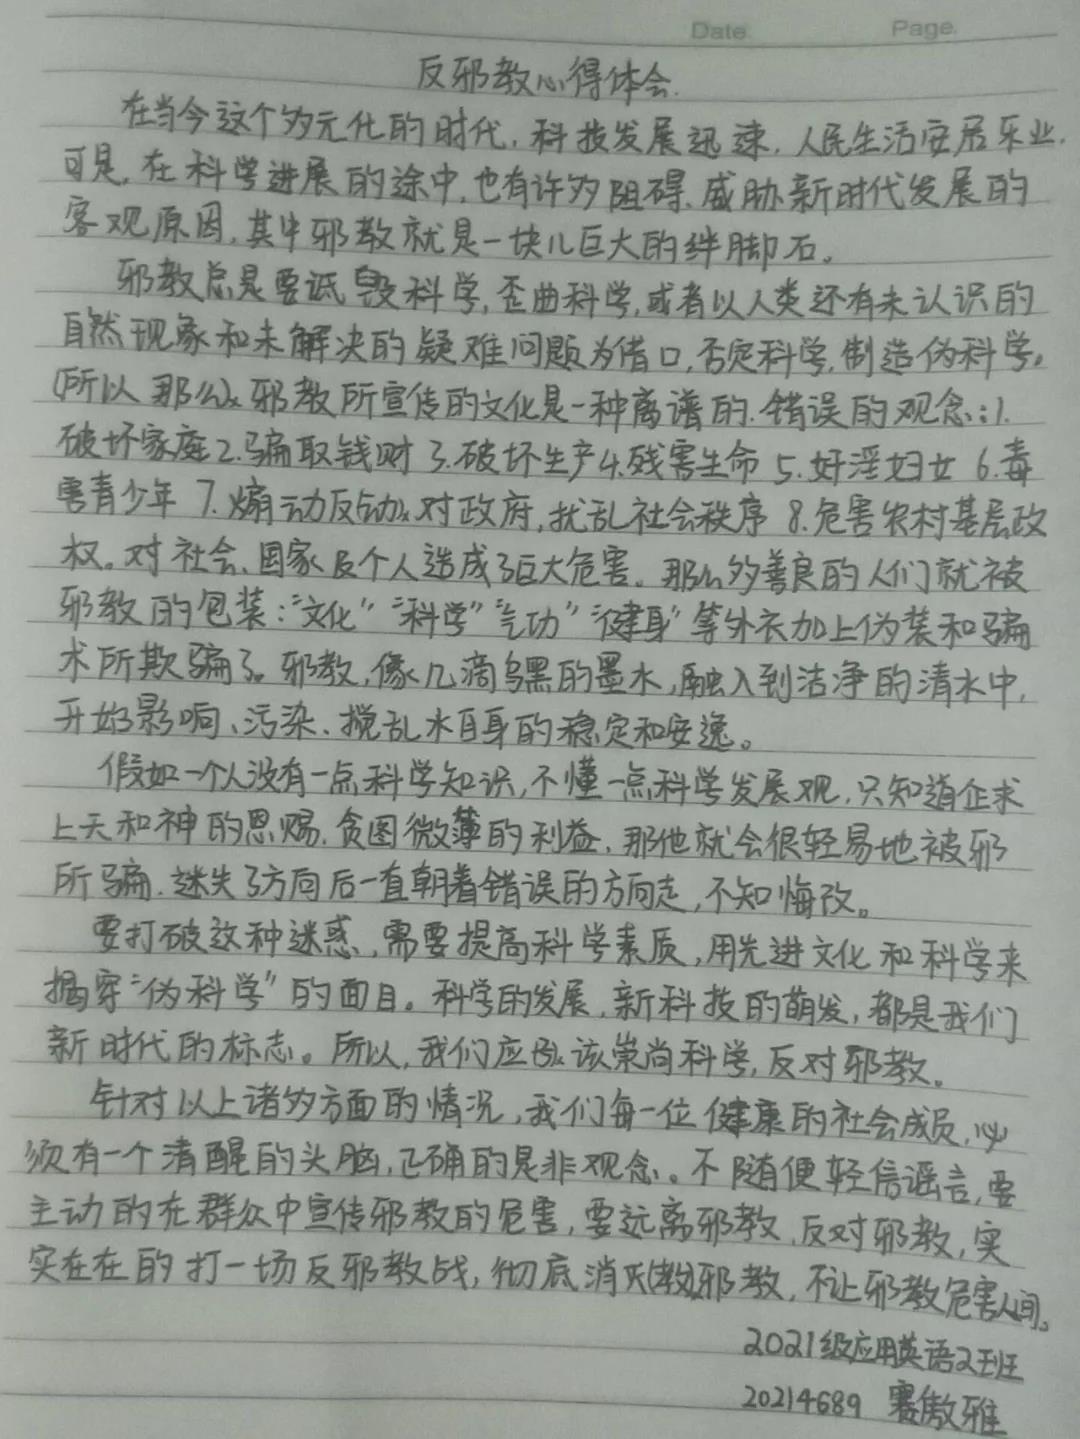 Date.
Page.
反邪教心得体会.
在当今这个多元化的时代,科技发展迅速,人民生活安居乐业,
可是,在科学进展的途中,也有许多阻碍、威胁新时代发展的
客观原因,其中邪教就是一块儿巨大的绊脚石。
邪教总是要诋毁科学,歪曲科学,或者以人类还有未认识的
自然现象和未解决的疑难问题为借口,否定科学,制造伪科学。
(所以那么)x邪教所宣传的文化是一种离谱的.错误的观念:1.
破坏家庭2.骗取钱财3.破坏生产4.残害生命5.奸淫妇女6.毒
害青少年7.煽动反动x对政府,扰乱社会秩序8.危害农村基层政
权。对社会、国家及个人造成了巨大危害。那么多善良的人们就被
邪教的包装:“文化”“科学”“气功”“健身”等外衣加上伪装和骗
术所欺骗了。邪教,像几滴乌黑的墨水,融入到洁净的清水中,
开始影响、污染、搅乱水自身的稳定和安逸。
假如一个人没有一点科学知识,不懂一点科学发展观,只知道企求
上天和神的恩赐.贪图微薄的利益,那他就会很轻易地被邪
所骗.迷失了方向后一直朝着错误的方向走,不知悔改。
要打破这种迷惑,需要提高科学素质,用先进文化和科学来
揭穿“伪科学”的面目。科学的发展,新科技的萌发,都是我们
新时代的标志。所以,我们应该崇尚科学,反对邪教。
针对以上诸多方面的情况,我们每一位健康的社会成员,必
须有一个清醒的头脑,正确的是非观念。不随便轻信谣言,要
主动的在群众中宣传邪教的危害,要远离邪教,反对邪教,实
实在在的打一场反邪教战,彻底消灭(教)x邪教,不让邪教危害人间。
2021级应用英语2班
20214689 赛傲雅